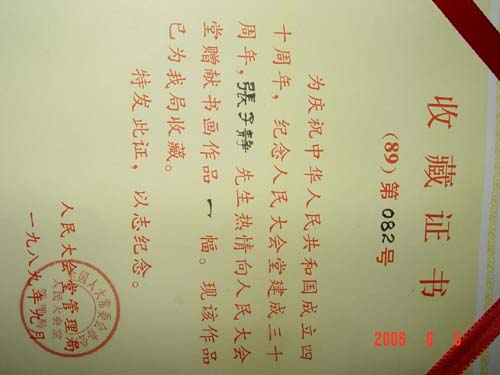 收藏证书
(89)第082号
为庆祝中华人民共和国成立四
十周年，纪念人民大会堂建成三十
周年，張子靜先生热情向人民大会
堂赠献书画作品一幅。现该作品
已为我局收藏。
特发此证，以志纪念。
人民大会堂管理局
一九八九年九月
人民大会堂
管理局
2006